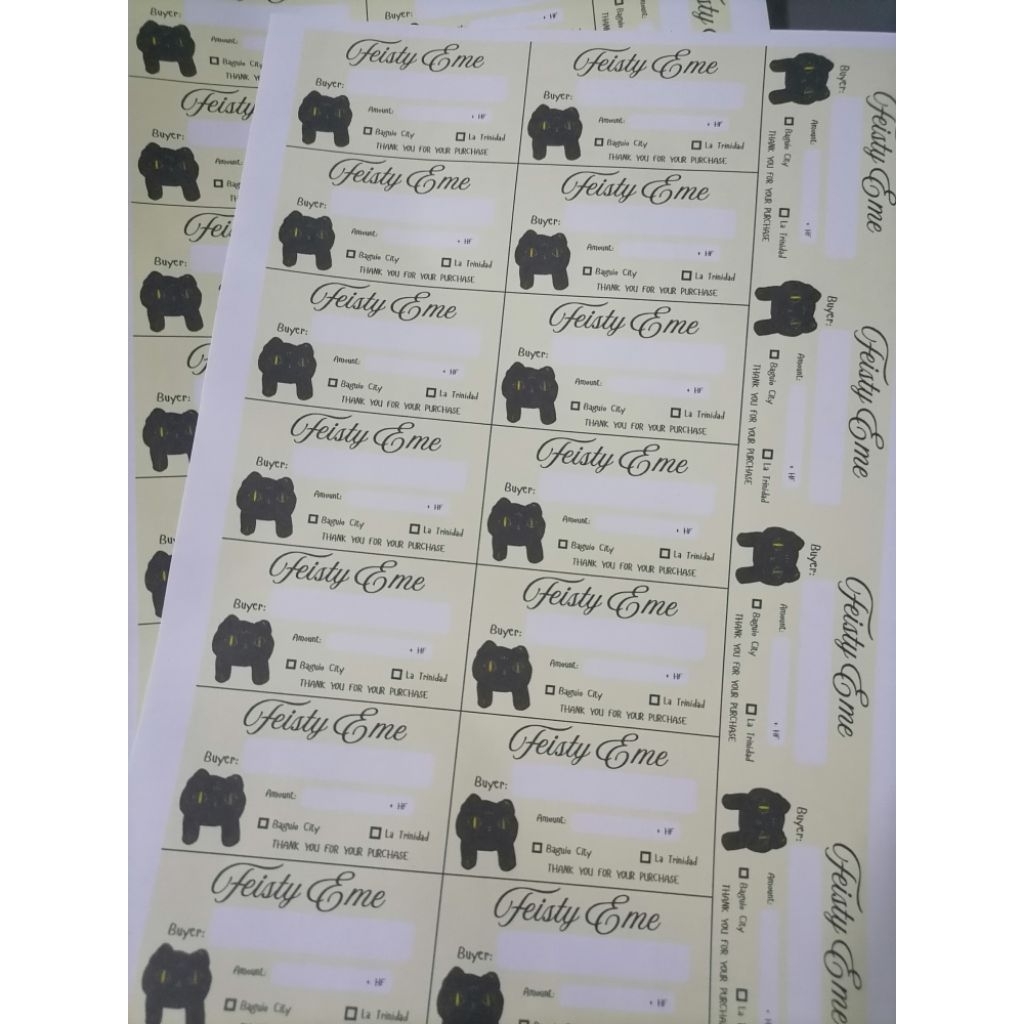 Feisty Eme
Buyer:
Amount: + HF
Baguio City La Trinidad
THANK YOU FOR YOUR PURCHASE
Feisty Eme
Buyer:
Amount: + HF
Baguio City La Trinidad
THANK YOU FOR YOUR PURCHASE
Feisty Eme
Buyer:
Amount: + HF
Baguio City La Trinidad
THANK YOU FOR YOUR PURCHASE
Feisty Eme
Buyer:
Amount: + HF
Baguio City La Trinidad
THANK YOU FOR YOUR PURCHASE
Feisty Eme
Buyer:
Amount: + HF
Baguio City La Trinidad
THANK YOU FOR YOUR PURCHASE
Feisty Eme
Buyer:
Amount: + HF
Baguio City La Trinidad
THANK YOU FOR YOUR PURCHASE
Feisty Eme
Buyer:
Amount: + HF
Baguio City La Trinidad
THANK YOU FOR YOUR PURCHASE
Feisty Eme
Buyer:
Amount: + HF
Baguio City La Trinidad
THANK YOU FOR YOUR PURCHASE
Feisty Eme
Buyer:
Amount: + HF
Baguio City La Trinidad
THANK YOU FOR YOUR PURCHASE
Feisty Eme
Buyer:
Amount: + HF
Baguio City La Trinidad
THANK YOU FOR YOUR PURCHASE
Feisty Eme
Buyer:
Amount: + HF
Baguio City La Trinidad
THANK YOU FOR YOUR PURCHASE
Feisty Eme
Buyer:
Amount: + HF
Baguio City La Trinidad
THANK YOU FOR YOUR PURCHASE
Feisty Eme
Buyer:
Amount: + HF
Baguio City La Trinidad
Feisty Eme
Buyer:
Amount: + HF
Feisty Eme
Buyer:
Amount: + HF
Baguio City La Trinidad
THANK YOU FOR YOUR PURCHASE
Feisty Eme
Buyer:
Amount: + HF
Baguio City La Trinidad
THANK YOU FOR YOUR PURCHASE
Feisty Eme
Buyer:
Amount: + HF
Baguio City La Trinidad
THANK YOU FOR YOUR PURCHASE
Feisty Eme
Buyer:
Amount:
Baguio City
THANK YOU FOR YOUR PURCHASE
Buyer:
Amount:
THANK
Feisty
Buyer:
Amount:
Buyer:
Buyer:
+ HF